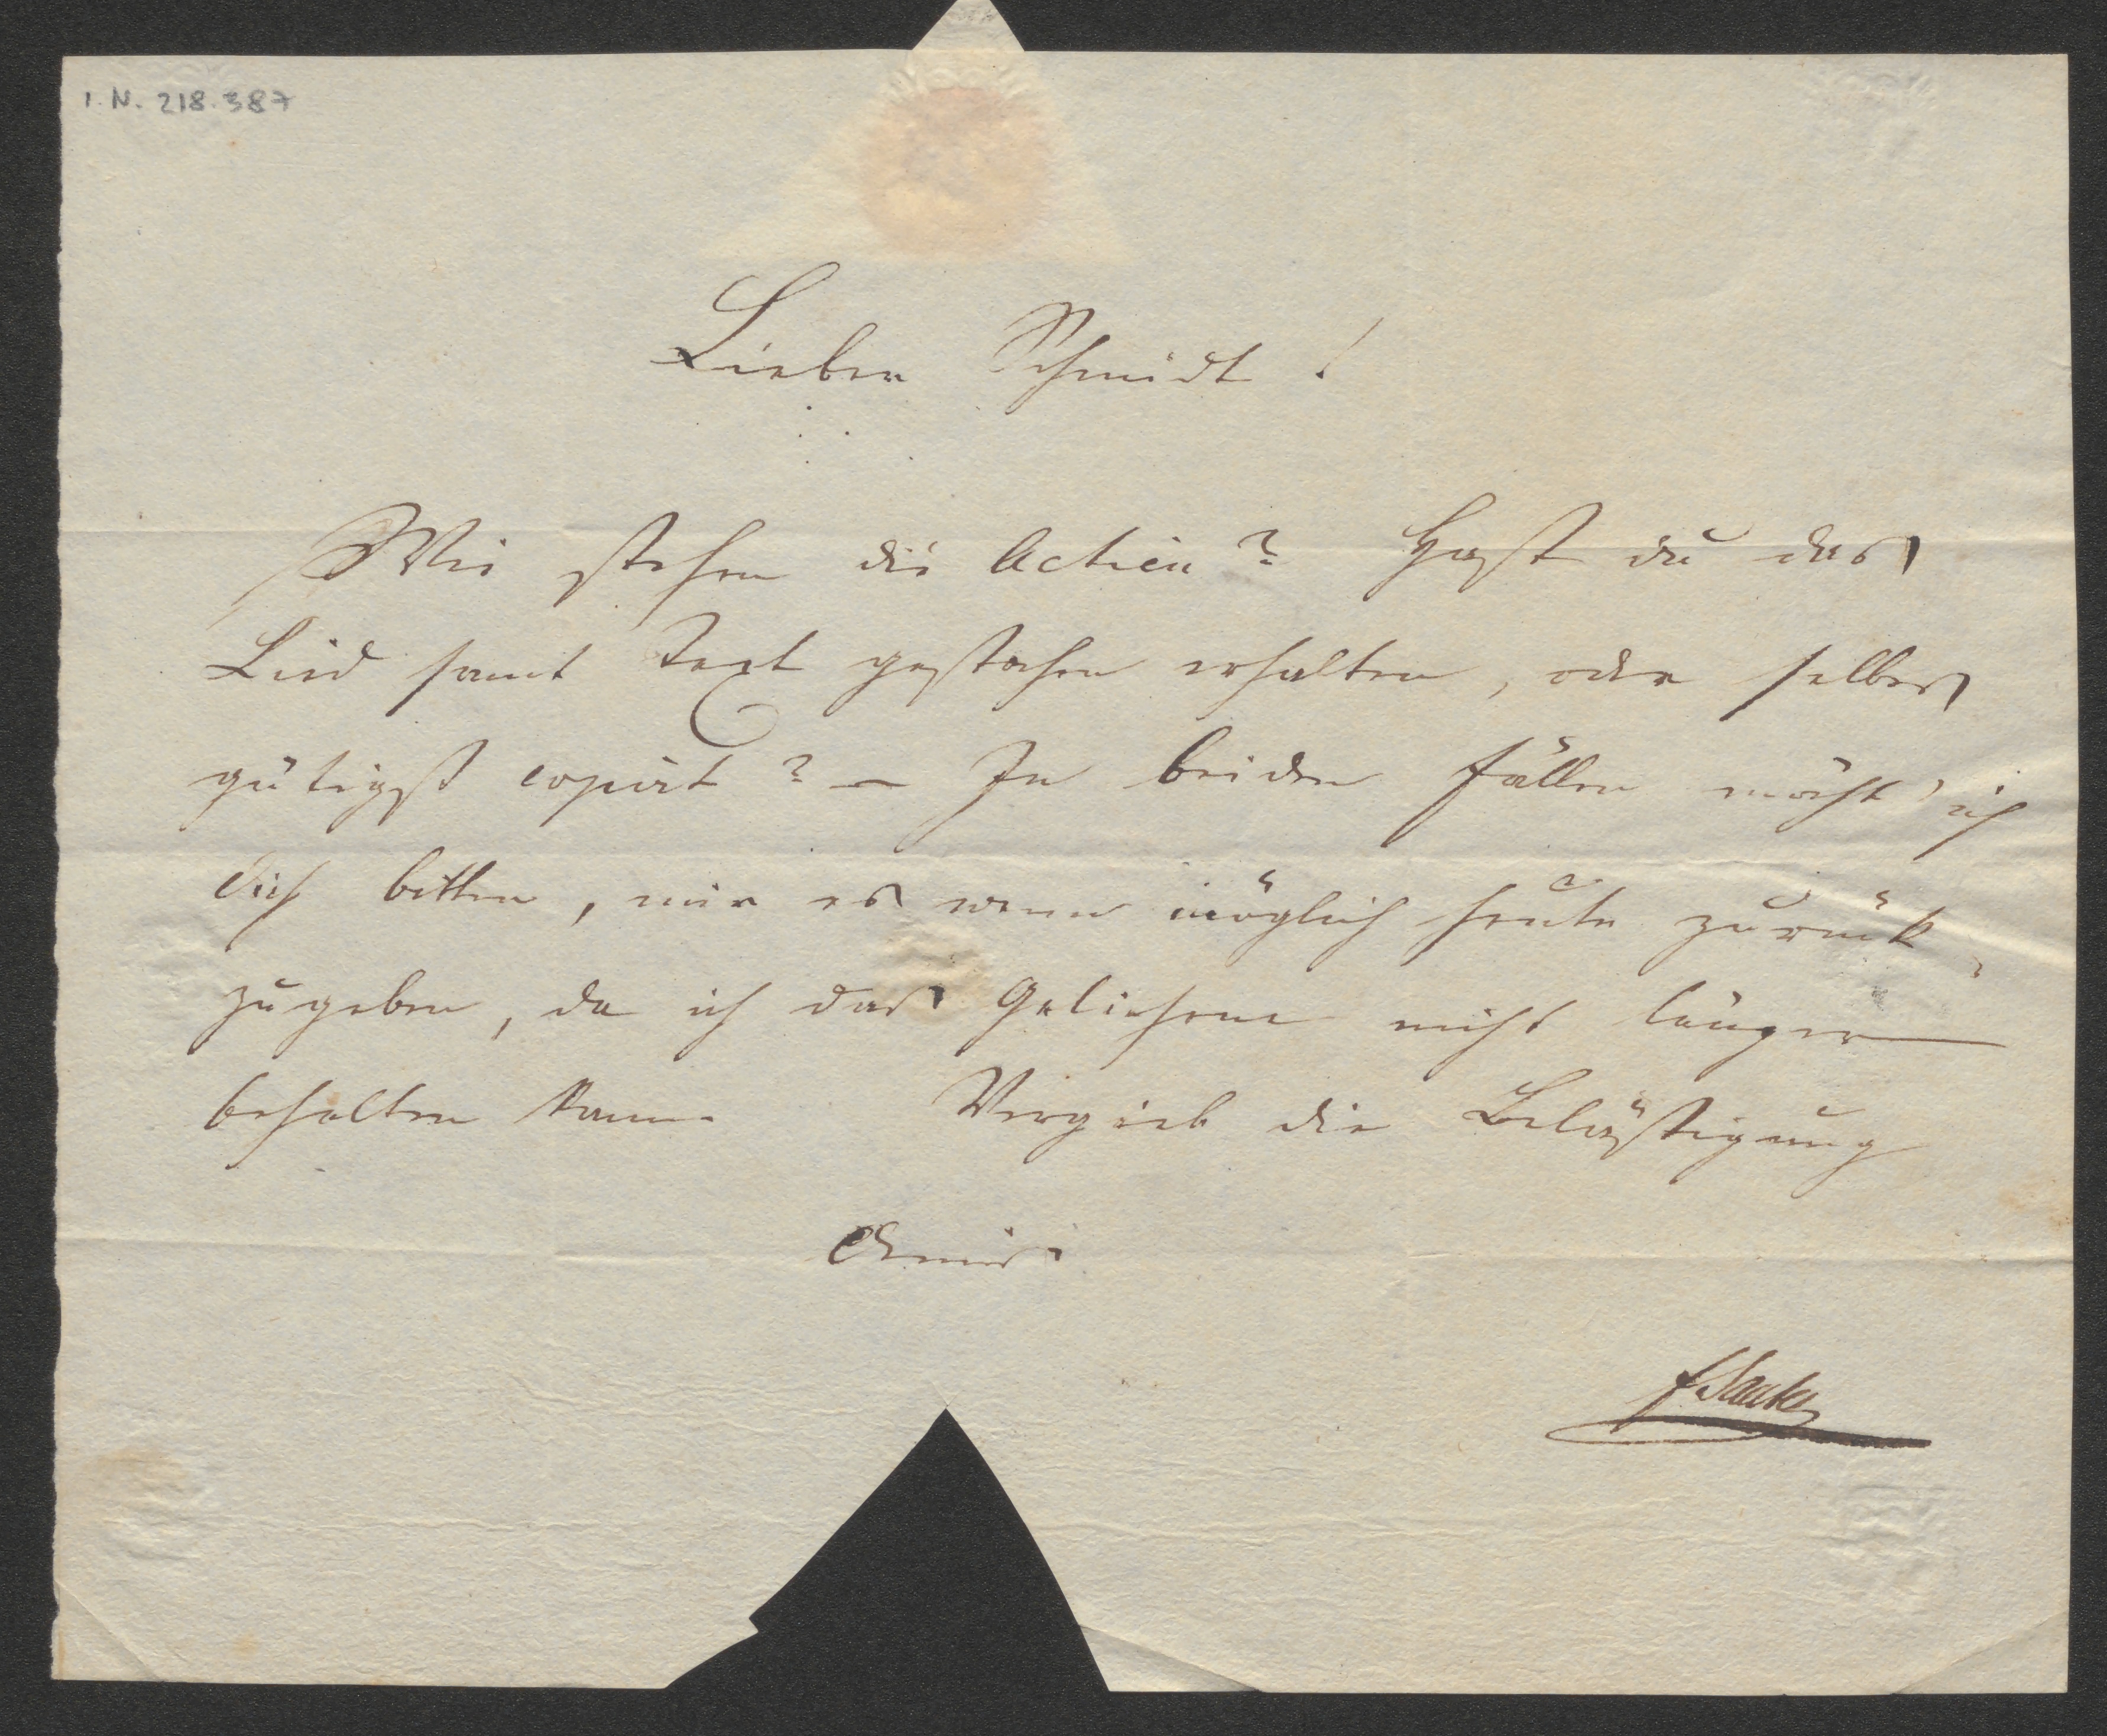 I. N. 218.387
Lieber Schmidt!
Wie stehen die Actien? Hast du das
Lied samt Text gestochen erhalten, oder selbes
gütigst copirt? – In beiden Fällen möcht' ich
dich bitten, mir es wenn möglich heute zurück
zugeben, da ich das Geliehene nicht länger
behalten kann. Vergieb die Belästigung